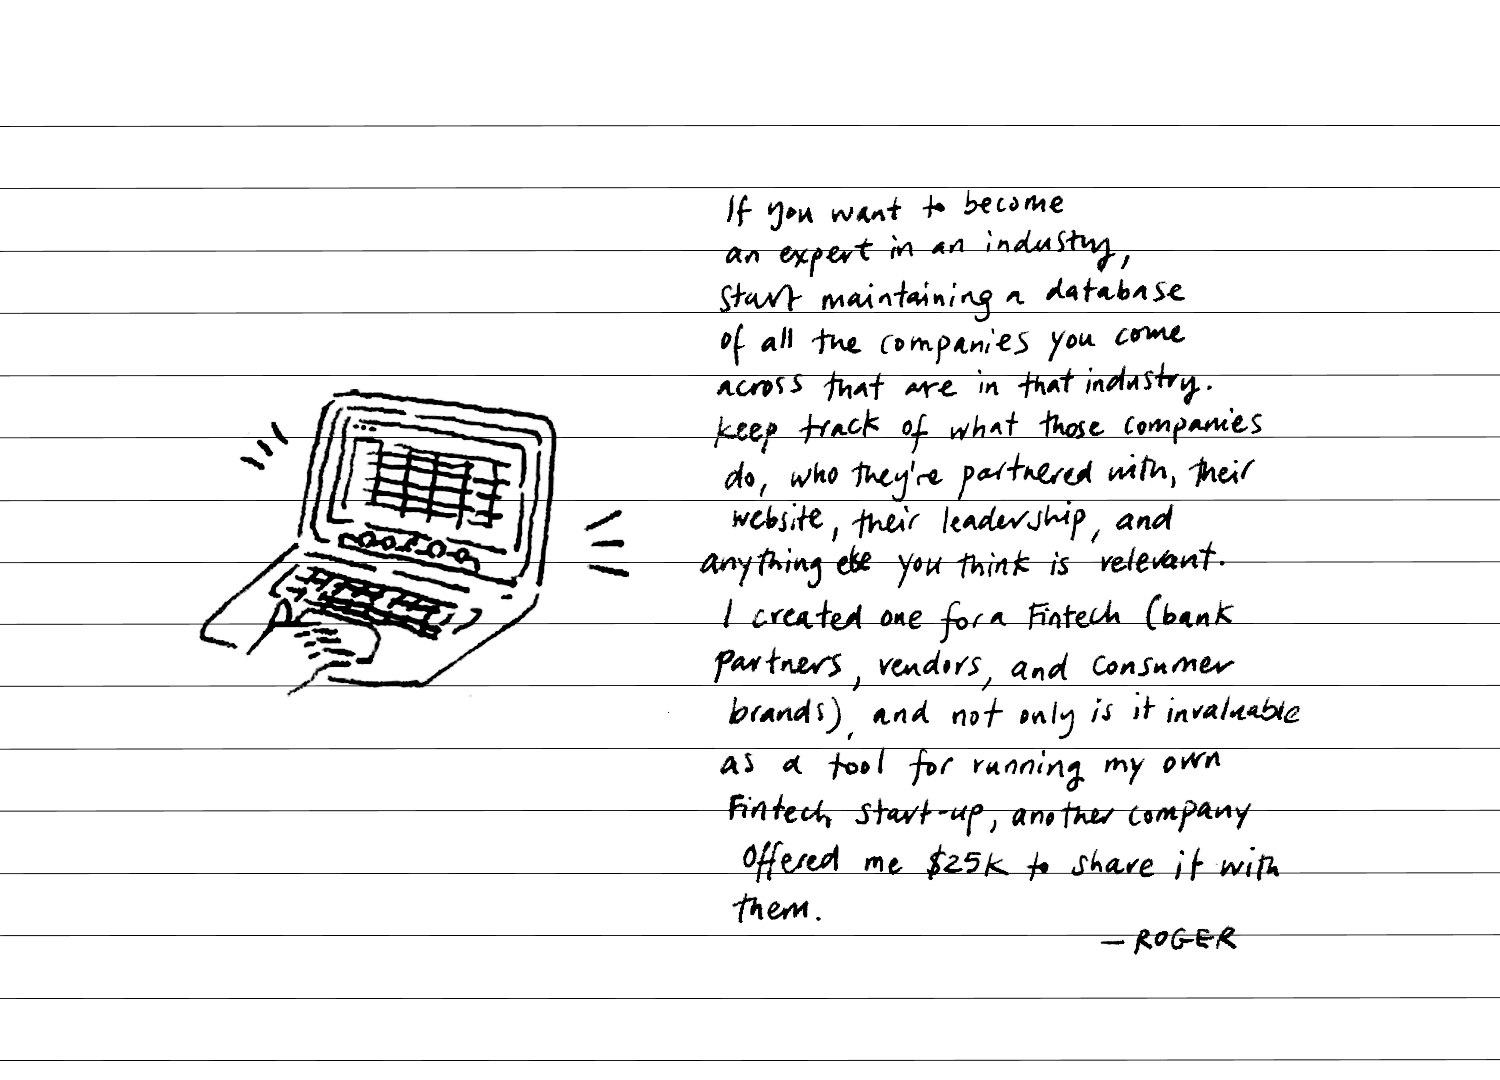 If you want to become
an expert in an industry,
start maintaining a database
of all the companies you come
across that are in that industry.
keep track of what those companies
do, who they're partnered with, their
website, their leadership, and
anything else you think is relevant.
I created one for a Fintech (bank
partners, vendors, and consumer
brands), and not only is it invaluable
as a tool for running my own
Fintech start-up, another company
offered me $25K to share it with
them.
— ROGER